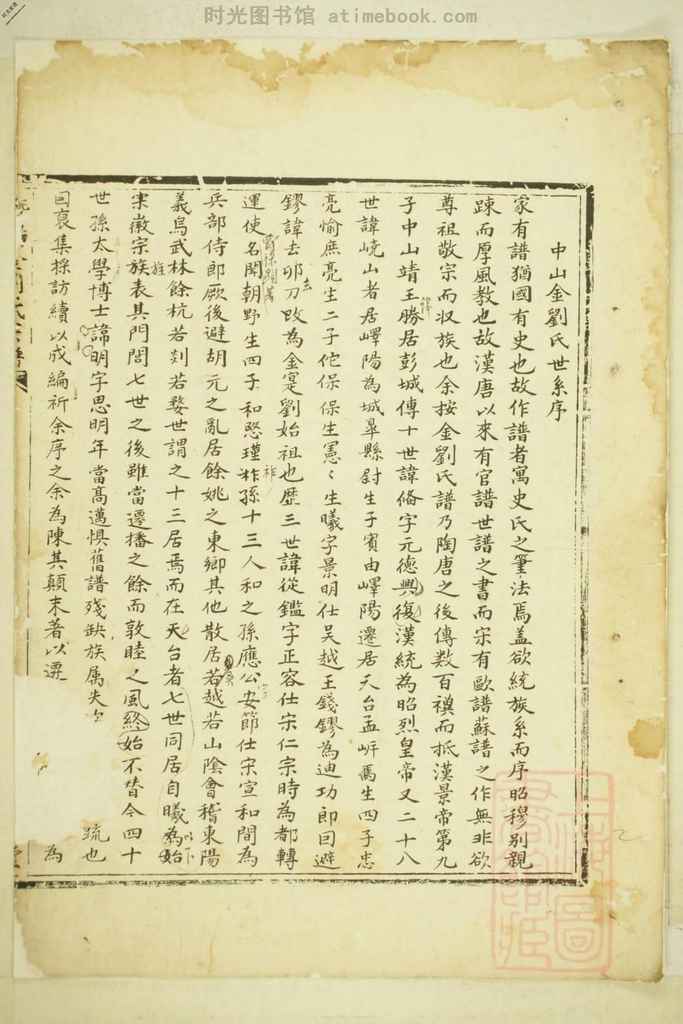 时光图书馆 atimebook.com
中山金劉氏世系序
家有譜猶國有史也故作譜者寓史氏之筆法焉盖欲統族系而序昭穆別親
踈而厚風教也故漢唐以來有官譜世譜之書而宋有歐譜蘇譜之作無非欲
尊祖敬宗而収族也余按金劉氏譜乃陶唐之後傳数百禩而抵漢景帝第九
子中山靖王勝居彭城傳十世諱俻字元德興復漢統為昭烈皇帝又二十八
世諱嶢山者居嶧陽為城皐縣尉生子賓由嶧陽遷居天台孟岍焉生四子忠
亮愉庶亮生二子佗保保生憲〻生曦字景明仕吴越王錢鏐為迪功郎囙避
鏐諱去卯刀改為金寔劉始祖也歴三世諱從鑑字正容仕宋仁宗時為都轉
運使名聞朝野生四子和愍瑾祚孫十三人和之孫應公安節仕宋宣和間為
兵部侍郎厥後避胡元之亂居餘姚之東鄉其他散居若越若山陰會稽東陽
義烏武林餘杭若剡若婺世謂之十三居焉而在天台者七世同居自曦為始
宋徽宗族表其門閭七世之後雖當遷播之餘而敦睦之風終始不替今四十
世孫太學博士諱明字思明年當髙邁惧舊譜殘缺族属失 疏也
囙裒集採訪續以成編祈余序之余為陳其顛末著以 為